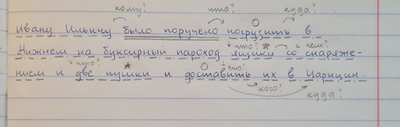 кому? что? куда?
Ивану Ильичу было поручено погрузить в
Нижнем на буксирный пароход ящики со снаряже-
что? с чем?
нием и две пушки и доставить их в Царицин.
что? что?
кого? куда?